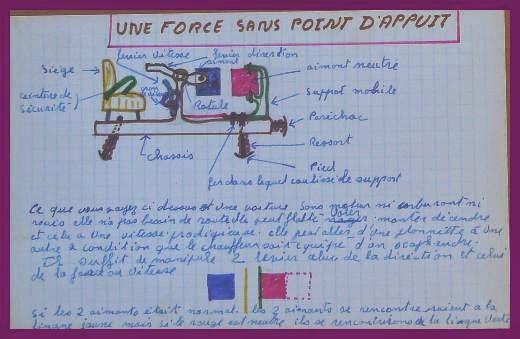 UNE FORCE SANS POINT D'APPUIT
levier vitesse
levier direction
aimant
Siège
aimant neutre
ceinture de sécurité
Rotule
Support mobile
Parechoc
Ressort
Chassis
Pied
fer dans lequel coulisse de support
Ce que vous voyez ci dessous est une voiture sans moteur ni carburant ni
roues elle n'a pas besoin de route elle peut flotté voler monter décendre
et cela a une vitesse prodigieuse: elle peut aller d'une plannette à une
autre à condition que le chauffeur soit équipé d'un scaphendre.
Il suffit de manipulé 2 levier celui de la direction et celui
de la force ou vitesse
si les 2 aimants était normal les 2 aimants se rencontreraient a la
ligne jaune mais si le rouge est neutre ils se rencontrerons de la ligne verte